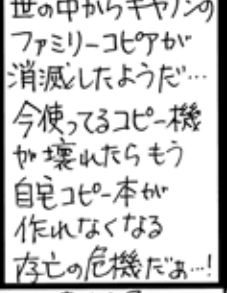 世の中からキヤノンの
ファミリーコピアが
消滅したようだ…
今使ってるコピー機
が壊れたらもう
自宅コピー本が
作れなくなる
存亡の危機だぁ…!